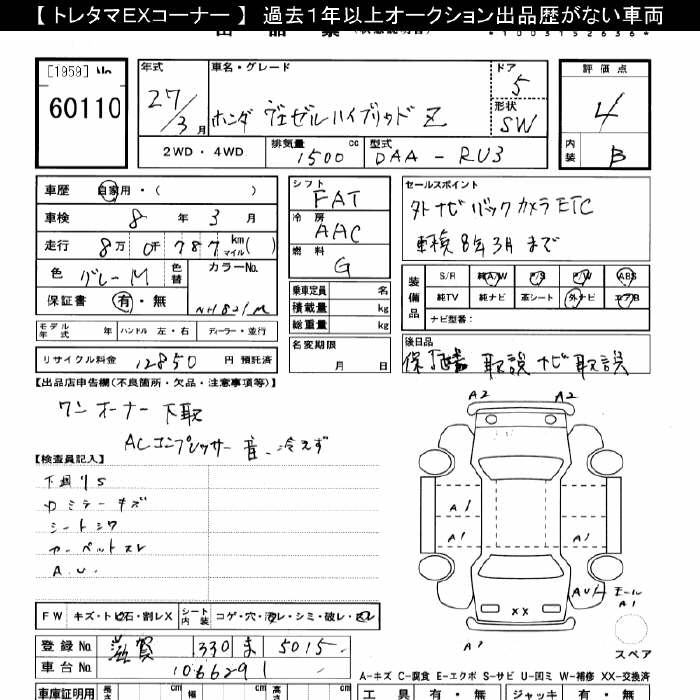 【 トレタマEXコーナー 】 過去1年以上オークション出品歴がない車両
[1959]
60110
年式
27/3月
車名・グレード
ホンダ ヴェゼルハイブリッド Z
ドア
5
形状
SW
評価点
4
内装
B
2WD・4WD
排気量
1500 cc
型式
DAA - RU3
車歴 自家用・( )
車検 8 年 3 月
走行 8万 0千 787 km マイル ( )
色 グレーM
色替
カラーNo.
NH821M
保証書 有・無
モデル年式 年 ハンドル 左・右 ディーラー・並行
リサイクル料金 12850 円 預託済
シフト
FAT
冷房
AAC
燃料
G
乗車定員 名
積載量 kg
総重量 kg
名変期限
月 日
セールスポイント
外ナビ バックカメラ ETC
車検8年3月まで
装備品
S/R 純A/W P/S P/W ABS
純TV 純ナビ 革シート 外ナビ エアB
ナビ型番:
後日品
取説 ナビ取説
【出品店申告欄(不良箇所・欠品・注意事項等)】
ワンオーナー下取
ACコンプレッサー音、冷えず
【検査員記入】
下廻りS
ミラーキズ
シートシワ
カーペットスレ
A.U.
A2 A2
A1
A1 A1
AU1 モール A1
XX
スペア
FW キズ・トビ石・割レX
シート内装 コゲ・穴・汚レ・シミ・破レ・スレ
登録No. 滋賀 330 ま 5015
車台No. 1066291
A-キズ C-腐食 E-エクボ S-サビ U-凹ミ W-補修 XX-交換済
車庫証明用 長さ cm 幅 cm 高さ cm
工具 有・無 ジャッキ 有・無